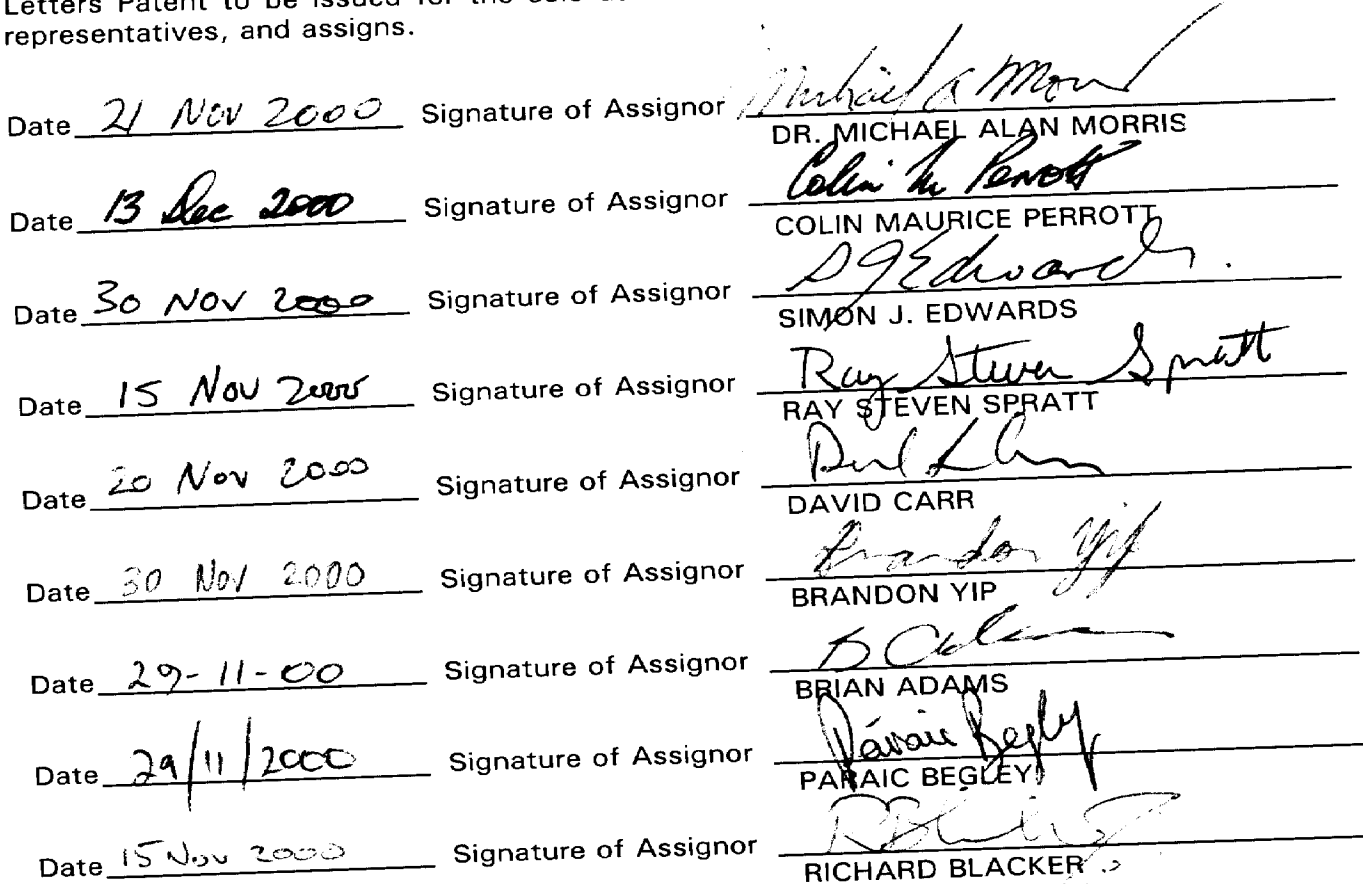 Letters Patent to be issued for the
representatives, and assigns.
Date 21 Nov 2000 Signature of Assignor Michael A Morris
DR. MICHAEL ALAN MORRIS
Date 13 Dec 2000 Signature of Assignor Colin M Perrott
COLIN MAURICE PERROTT
Date 30 NOV 2000 Signature of Assignor S J Edwards.
SIMON J. EDWARDS
Date 15 Nov 2000 Signature of Assignor Ray Steven Spratt
RAY STEVEN SPRATT
Date 20 Nov 2000 Signature of Assignor
DAVID CARR
Date 30 Nov 2000 Signature of Assignor Brandon Yip
BRANDON YIP
Date 29-11-00 Signature of Assignor B Adams
BRIAN ADAMS
Date 29/11/2000 Signature of Assignor Páraic Begley
PARAIC BEGLEY
Date 15 Nov 2000 Signature of Assignor
RICHARD BLACKER